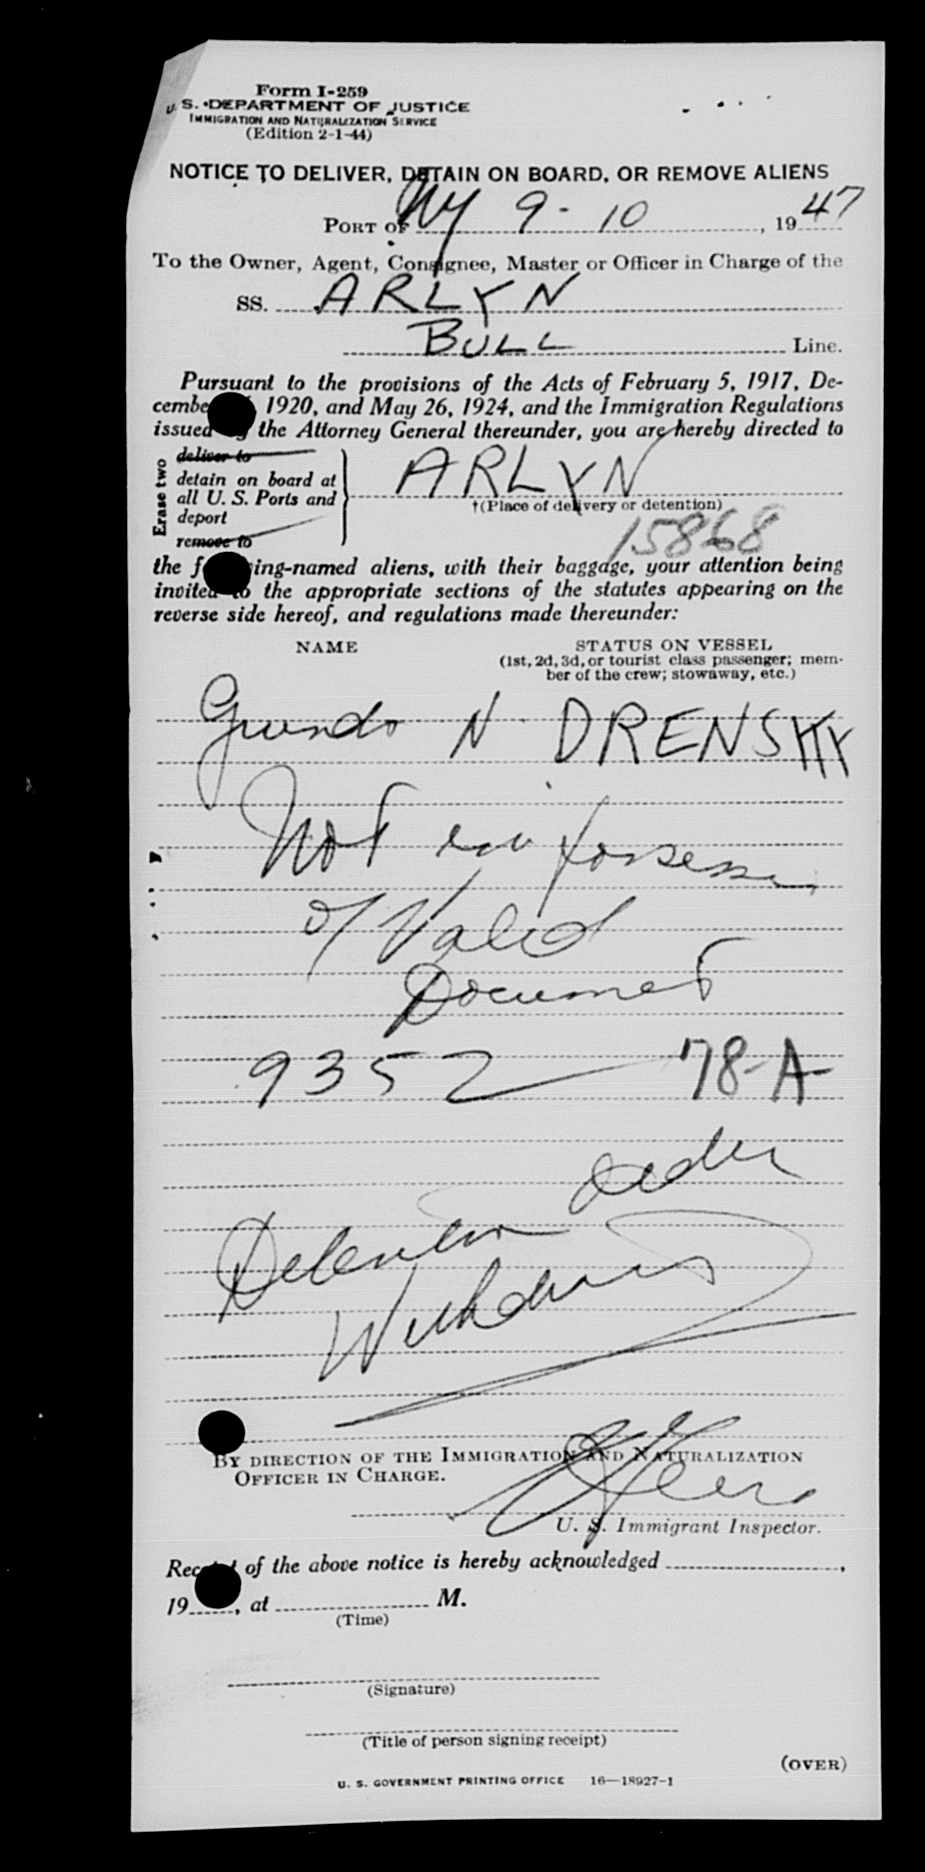 Form I-259
U. S. DEPARTMENT OF JUSTICE
IMMIGRATION AND NATURALIZATION SERVICE
(Edition 2-1-44)
NOTICE TO DELIVER, DETAIN ON BOARD, OR REMOVE ALIENS
PORT OF NY 9-10, 1947
To the Owner, Agent, Consignee, Master or Officer in Charge of the
SS. ARLYN
BULL Line.
Pursuant to the provisions of the Acts of February 5, 1917, De-
cembe 1920, and May 26, 1924, and the Immigration Regulations
issued by the Attorney General thereunder, you are hereby directed to
Erase two
deliver to
detain on board at
all U. S. Ports and
deport
remove to
ARLYN
†(Place of delivery or detention)
15868
the f ing-named aliens, with their baggage, your attention being
invited to the appropriate sections of the statutes appearing on the
reverse side hereof, and regulations made thereunder:
NAME STATUS ON VESSEL
(1st, 2d, 3d, or tourist class passenger; mem-
ber of the crew; stowaway, etc.)
N DRENSKY
Not in
of Valid
Document
9352 78-A
Detention Order
Withdrawn
BY DIRECTION OF THE IMMIGRATION AND NATURALIZATION
OFFICER IN CHARGE.
U. S. Immigrant Inspector.
Receipt of the above notice is hereby acknowledged ,
19 , at M.
(Time)
(Signature)
(Title of person signing receipt)
(OVER)
U. S. GOVERNMENT PRINTING OFFICE 16—18927-1